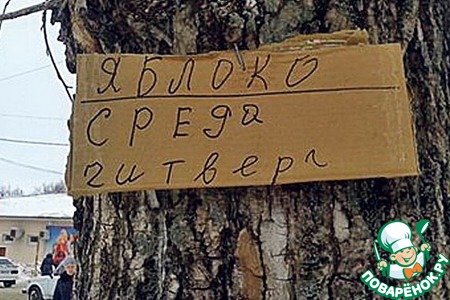 ЯБЛОКО
СРЕДа
читверг
ПОВАРЁНОК.РУ